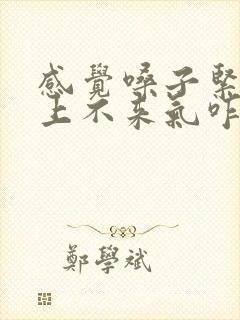 感覺嗓子緊
上不來氣咋
鄭學斌